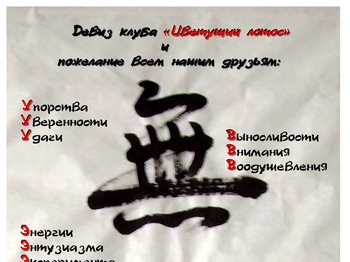 Девиз клуба «Цветущий лотос»
и
пожелание всем нашим друзьям:
無
Упорства
Уверенности
Удачи
Выносливости
Внимания
Воодушевления
Энергии
Энтузиазма